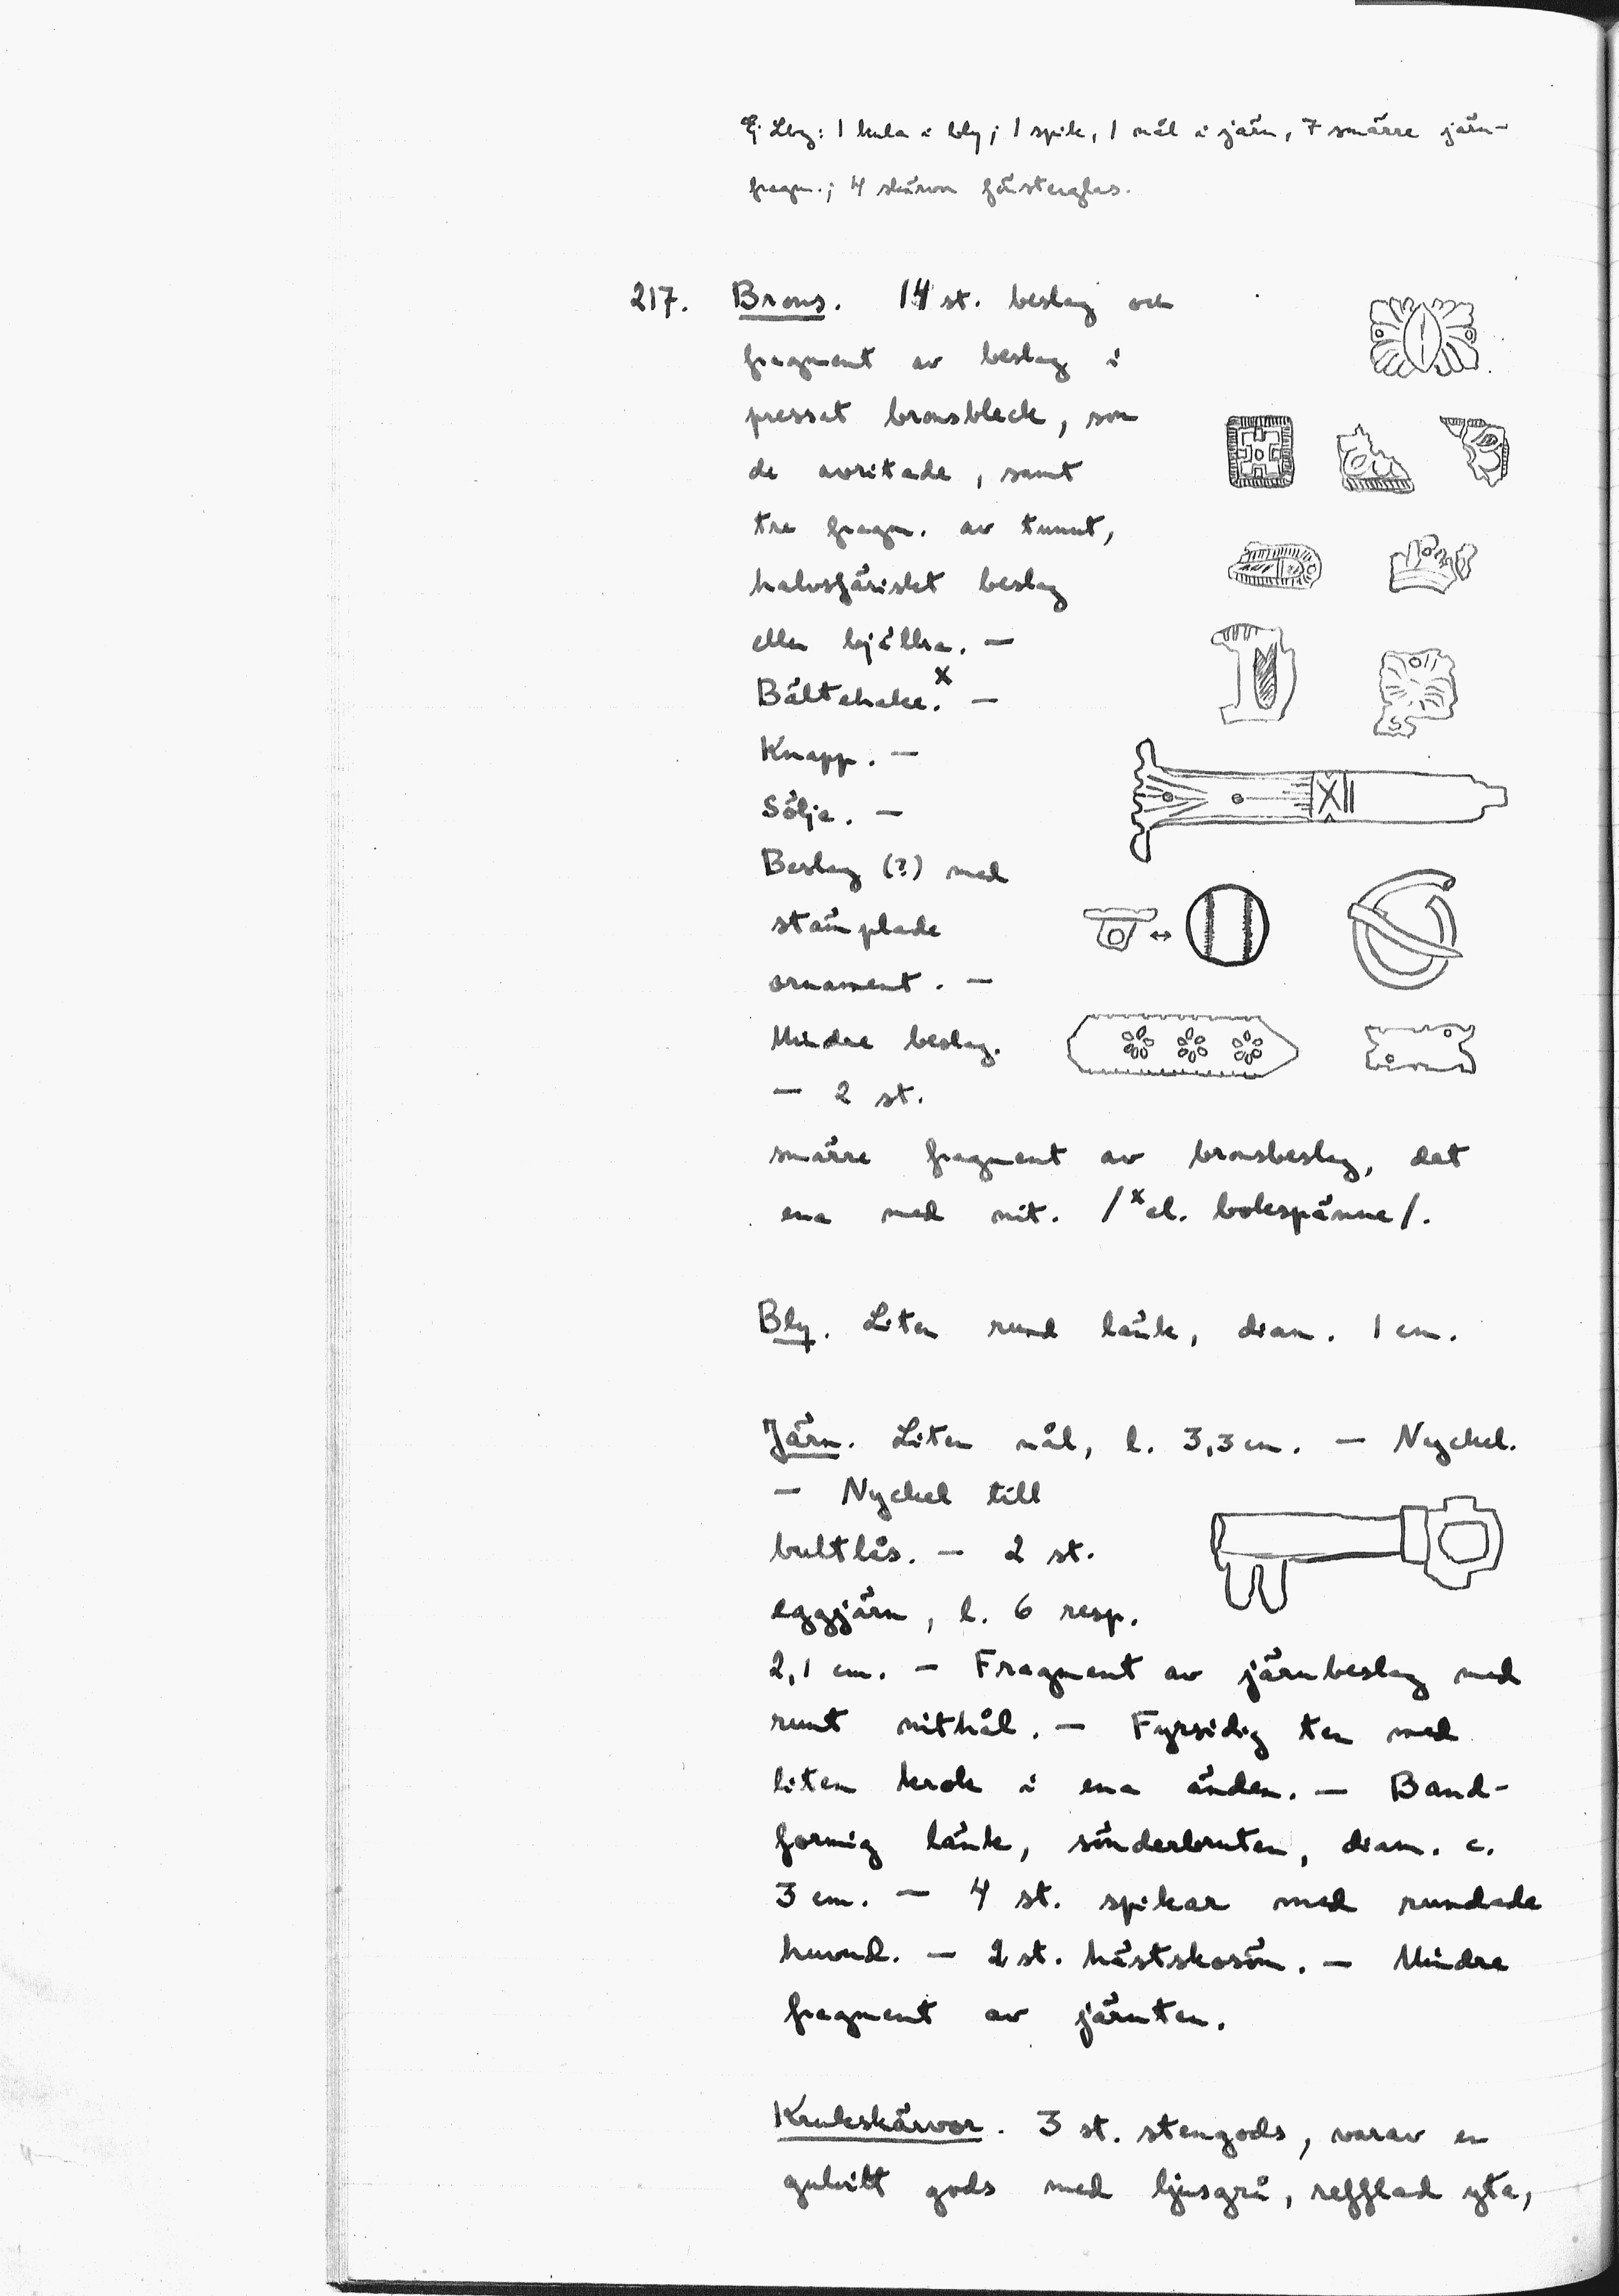 Ej tbg: 1 kula i bly; 1 spik, 1 nål i järn, 7 smärre järn-
fragm.; 4 skärvor fönsterglas.
217. Brons. 14 st. beslag och
fragment av beslag i
pressat bronsbleck, som
de avritade, samt
tre fragm. av tunnt,
halvsfäriskt beslag
eller bjällra. —
Bältehake.x —
Knapp. —
Sölja. —
Beslag (?) med
stämplade
ornament. —
Mindre beslag.
— 2 st.
smärre fragment av bronsbeslag, det
ena med nit. /x el. bokspänne/.
Bly. Liten rund länk, diam. 1 cm.
Järn. Liten nål, l. 3,3 cm. — Nyckel.
— Nyckel till
bultlås. — 2 st.
eggjärn, l. 6 resp.
2,1 cm. — Fragment av järnbeslag med
runt nithål. — Fyrsidig ten med
liten krok i ena änden. — Band-
formig länk, sönderbruten, diam. c.
3 cm. — 4 st. spikar med rundade
huvud. — 2 st. hästskosöm. — Mindre
fragment av järnten.
Krukskärvor. 3 st. stengods, varav en
gulvitt gods med ljusgrå, refflad yta,